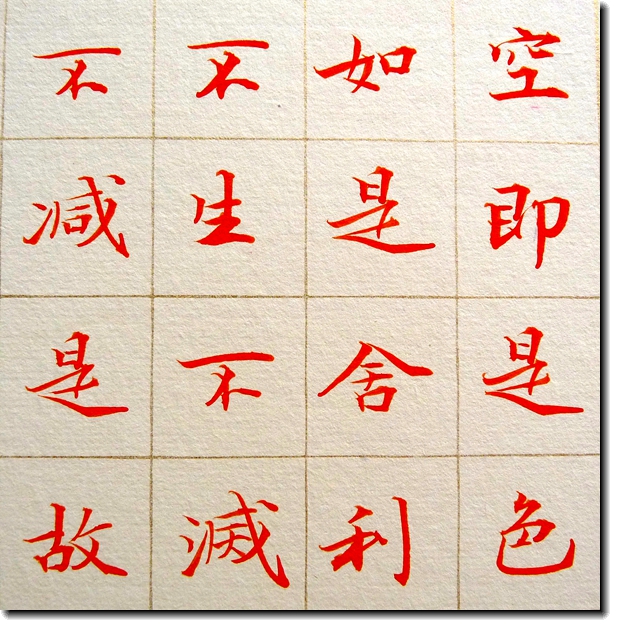 空即是色
如是舍利
不生不滅
不减是故